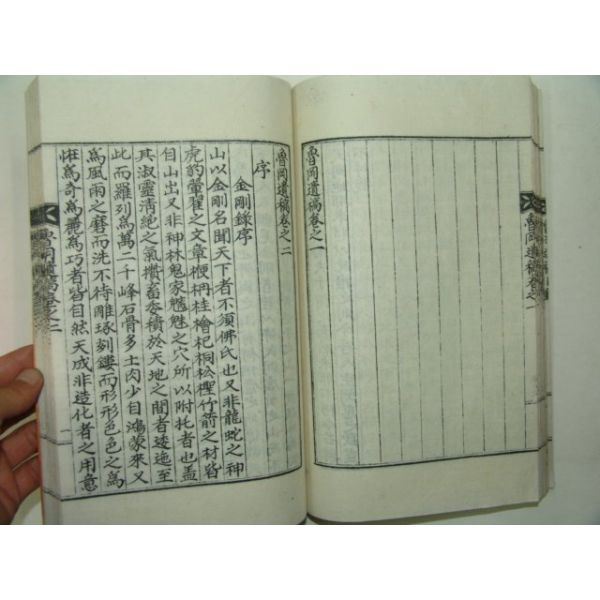 魯岡遺稿卷之一
魯岡遺稿卷之一
魯岡遺稿卷之二
序
金剛錄序
山以金剛名聞天下者不須佛氏也又非龍蛇之神
虎豹翬翟之文章楩柟桂檜杞桐松檉竹箭之材皆
自山出又非神林鬼家魑魅之穴所以附托者也盖
其淑靈淸絶之氣攢畜委積於天地之間者逶迤至
此而羅列爲萬二千峰石骨多土肉少自鴻蒙來又
爲風雨之磨而洗不待雕琢刻鏤而形形色色之爲
恠爲奇爲麗爲巧者皆自然天成非造化者之用意
魯岡遺稿卷之二
一